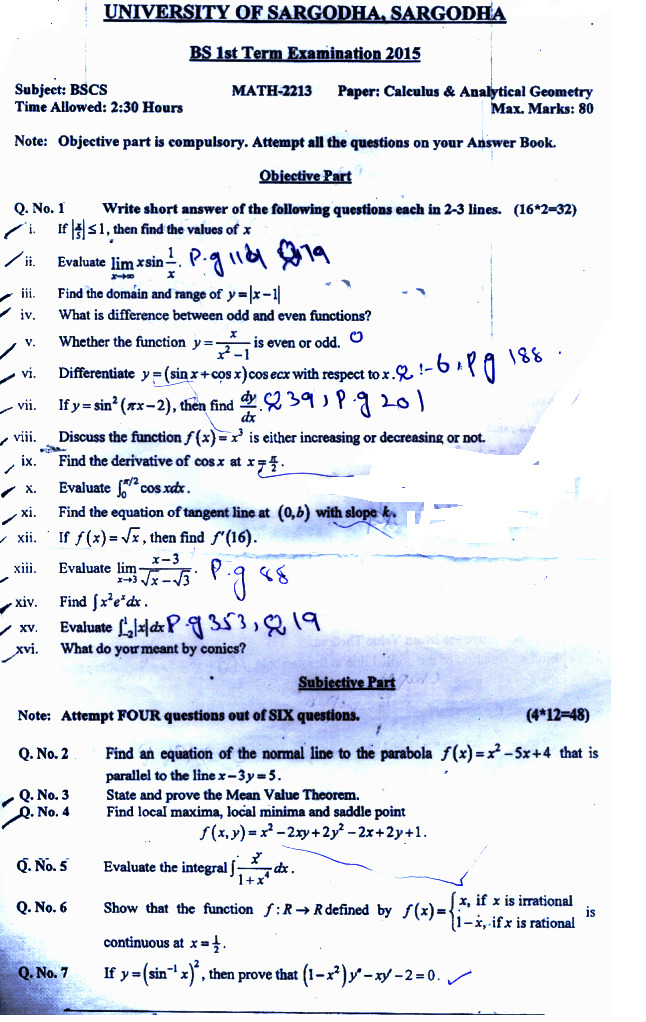 UNIVERSITY OF SARGODHA, SARGODHA
BS 1st Term Examination 2015
Subject: BSCS MATH-2213 Paper: Calculus & Analytical Geometry
Time Allowed: 2:30 Hours Max. Marks: 80
Note: Objective part is compulsory. Attempt all the questions on your Answer Book.
Objective Part
Q. No. 1 Write short answer of the following questions each in 2-3 lines. (16*2=32)
i. If |x/5| ≤ 1, then find the values of x
ii. Evaluate lim x→∞ x sin 1/x. P.g Q 79
iii. Find the domain and range of y = |x − 1|
iv. What is difference between odd and even functions?
v. Whether the function y = x/(x² − 1) is even or odd. O
vi. Differentiate y = (sin x + cos x) cos ecx with respect to x. Q:-6, Pg 188.
vii. If y = sin² (πx − 2), then find dy/dx. Q 39, P.g 201
viii. Discuss the function f(x) = x³ is either increasing or decreasing or not.
ix. Find the derivative of cos x at x = π/2.
x. Evaluate ∫₀^(π/2) cos x dx.
xi. Find the equation of tangent line at (0, b) with slope k.
xii. If f(x) = √x, then find f′(16).
xiii. Evaluate lim x→3 (x − 3)/(√x − √3). P.g 88
xiv. Find ∫ x² eˣ dx.
xv. Evaluate ∫₋₂¹ |x| dx P.g 353, Q 19
xvi. What do your meant by conics?
Subjective Part
Note: Attempt FOUR questions out of SIX questions. (4*12=48)
Q. No. 2 Find an equation of the normal line to the parabola f(x) = x² − 5x + 4 that is
parallel to the line x − 3y = 5.
Q. No. 3 State and prove the Mean Value Theorem.
Q. No. 4 Find local maxima, local minima and saddle point
f(x, y) = x² − 2xy + 2y² − 2x + 2y + 1.
Q. No. 5 Evaluate the integral ∫ x/(1 + x⁴) dx.
Q. No. 6 Show that the function f : R → R defined by f(x) = { x, if x is irrational
1 − x, if x is rational is
continuous at x = 1/2.
Q. No. 7 If y = (sin⁻¹ x)², then prove that (1 − x²) y″ − xy′ − 2 = 0.